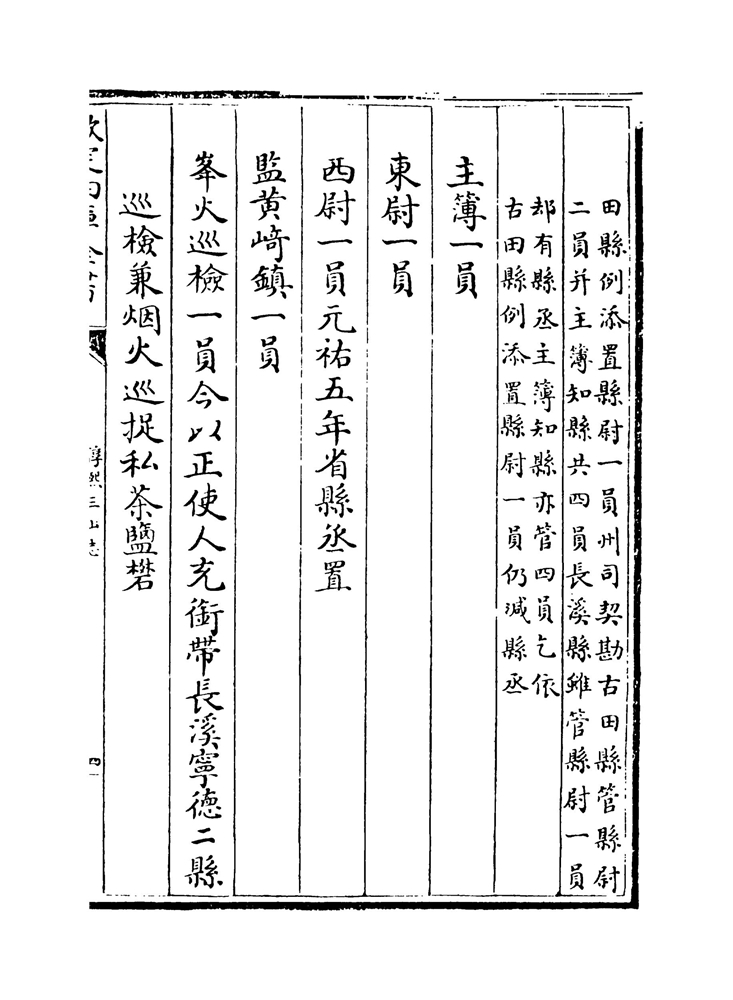 田縣例添置縣尉一員州司契勘古田縣管縣尉
二員并主簿知縣共四員長溪縣雖管縣尉一員
却有縣丞主簿知縣亦管四員乞依
古田縣例添置縣尉一員仍減縣丞
主簿一員
東尉一員
西尉一員元祐五年省縣丞置
監黄﨑鎮一員
峯火巡檢一員今以正使人充銜帶長溪寧德二縣
巡檢兼烟火巡捉私茶鹽礬
淳熙三山志
四